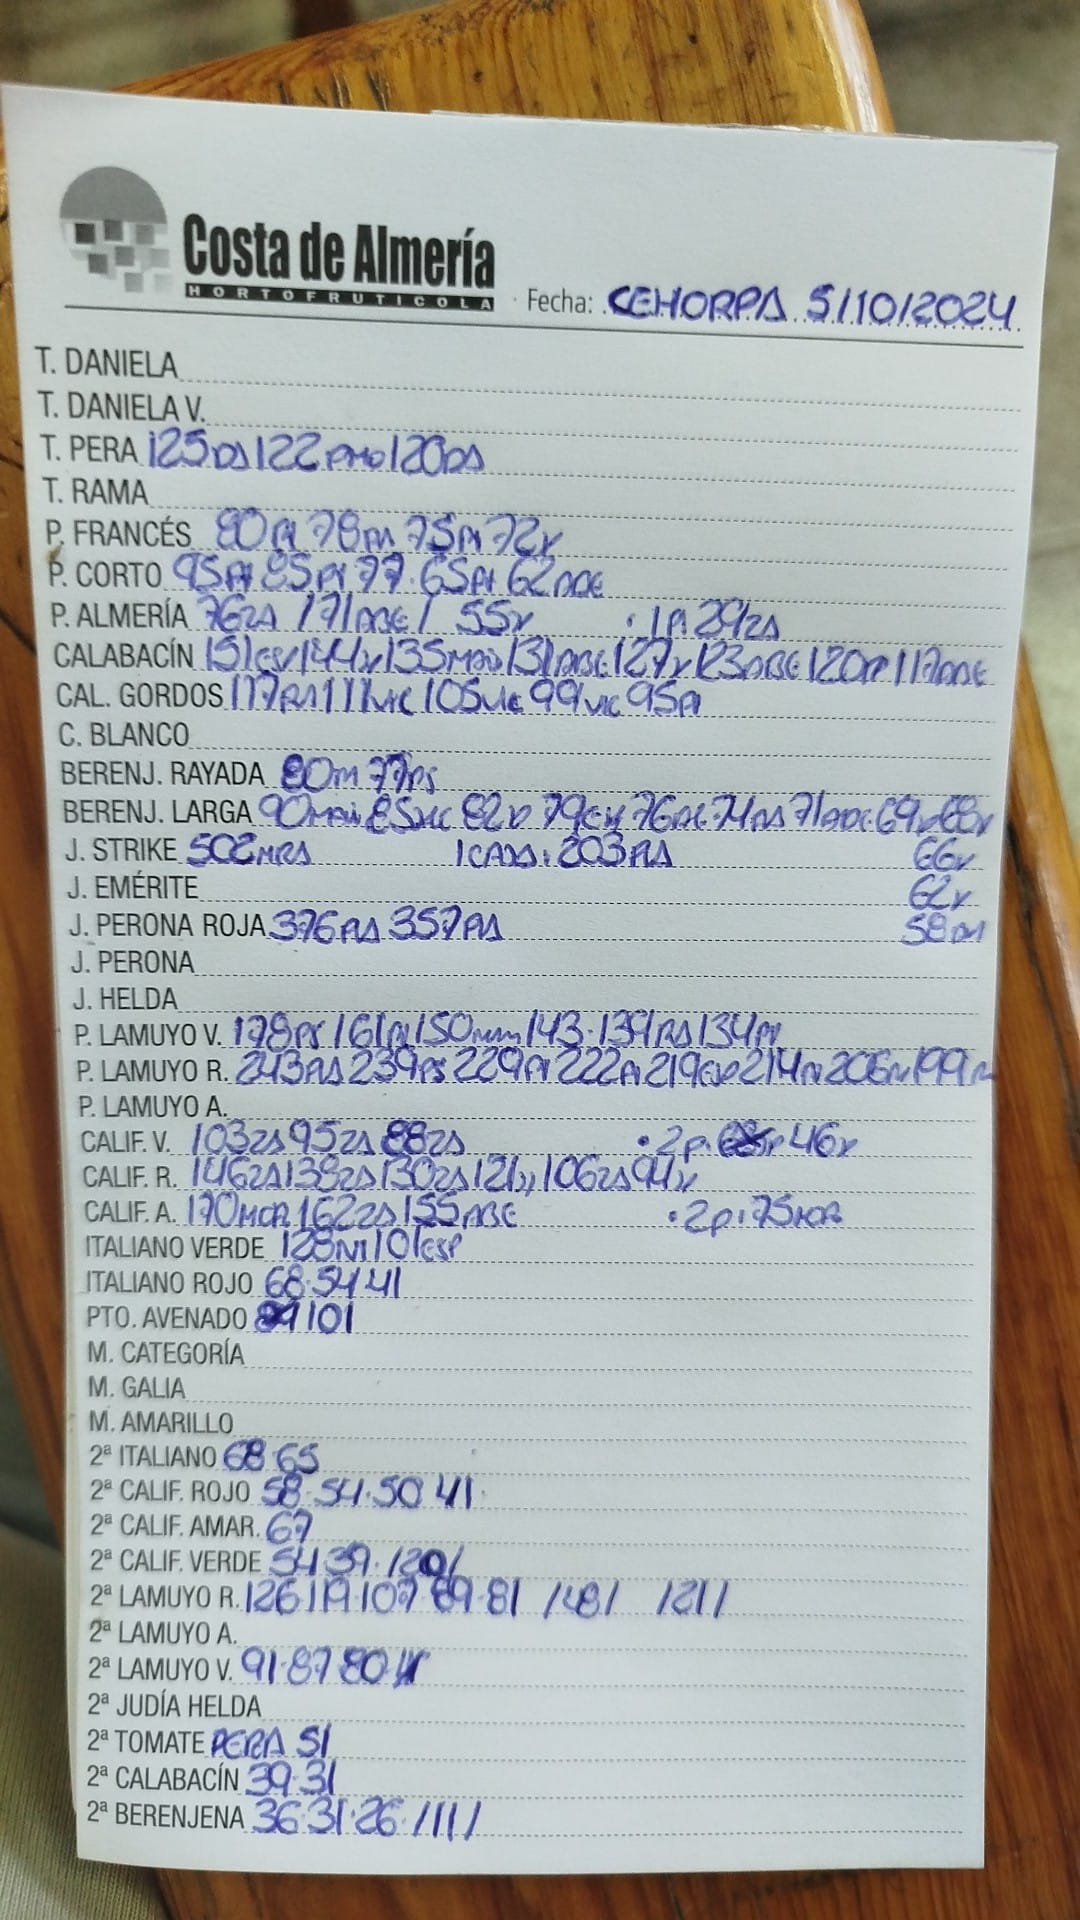 Costa de Almería
HORTOFRUTICOLA
Fecha: CEHORPA 5/10/2024
T. DANIELA
T. DANIELA V.
T. PERA 125DS 122 120DS
T. RAMA
P. FRANCÉS 80PI 78PA 75PI 72V
P. CORTO 95PI 85PI 77·65PI 62ADE
P. ALMERÍA 76ZA /71ABE/ 55V ·1P: 29ZA
CALABACÍN 151 144V 135 131ABE 127V 123ABE 120 117ADE
CAL. GORDOS 117PLA 111VIC 105VIC 99VIC 95PI
C. BLANCO
BERENJ. RAYADA 80M 77PS
BERENJ. LARGA 90 85 82V 79 76 74 71ADE 69V 68V
J. STRIKE 502MRA 1CAJA: 203PLA 66V
J. EMÉRITE 62V
J. PERONA ROJA 376PLA 357PLA 58PM
J. PERONA
J. HELDA
P. LAMUYO V. 178PS 161PI 150 143·139PLA 134PI
P. LAMUYO R. 243PLA 239PS 229PI 222PI 219 214PI 206 199
P. LAMUYO A.
CALIF. V. 103ZA 95ZA 88ZA ·2P: 46V
CALIF. R. 146ZA 138ZA 130ZA 121,, 106ZA 94V
CALIF. A. 170MOR 162ZA 155ABE ·2P: 75MOR
ITALIANO VERDE 128NI 101ESP
ITALIANO ROJO 68·54·41
PTO. AVENADO 101
M. CATEGORÍA
M. GALIA
M. AMARILLO
2ª ITALIANO 68·65
2ª CALIF. ROJO 58·54·50 41
2ª CALIF. AMAR. 67
2ª CALIF. VERDE 54 39·/20/
2ª LAMUYO R. 126 119·107 89·81 /48/ /21/
2ª LAMUYO A.
2ª LAMUYO V. 91·87·80
2ª JUDÍA HELDA
2ª TOMATE PERA 51
2ª CALABACÍN 39·31
2ª BERENJENA 36·31·26·/11/